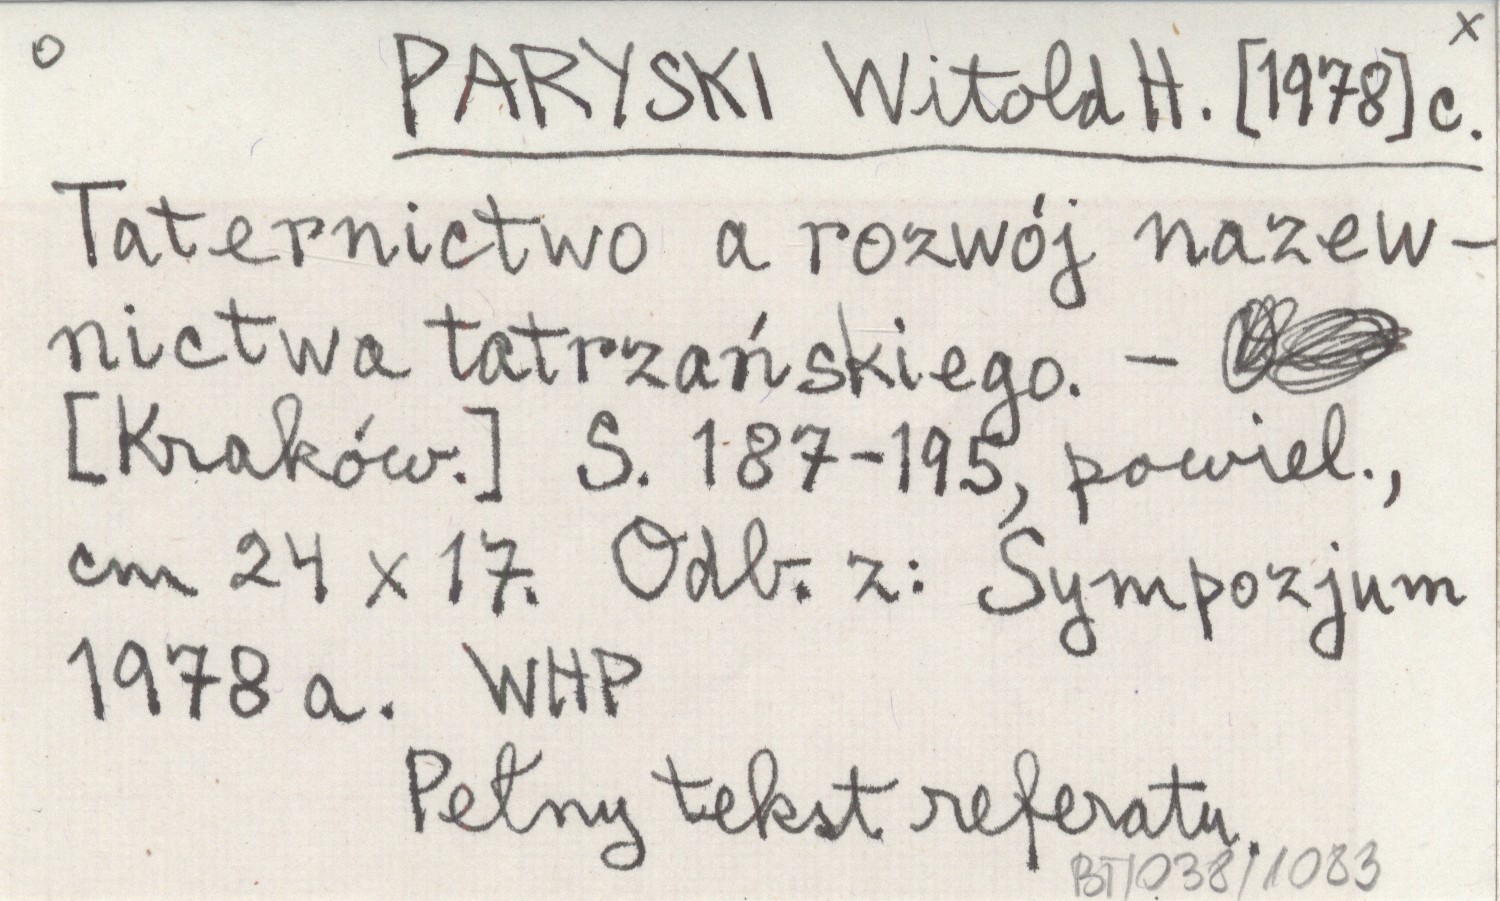 o PARYSKI Witold H. [1978] c. x
Taternictwo a rozwój nazew-
nictwa tatrzańskiego. -
[Kraków.] S. 187-195, powiel.,
cm 24 x 17. Odb. z: Sympozjum
1978 a. WHP
Pełny tekst referatu.
BT/038/1083